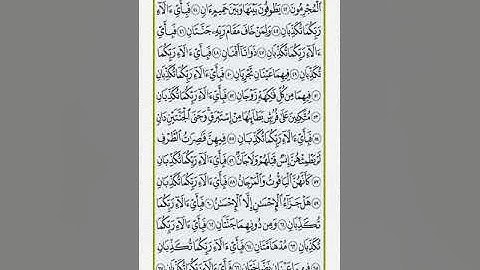 ٱلْمُجْرِمُونَ ٤٣ يَطُوفُونَ بَيْنَهَا وَبَيْنَ حَمِيمٍ ءَانٍ ٤٤ فَبِأَيِّ ءَالَآءِ
رَبِّكُمَا تُكَذِّبَانِ ٤٥ وَلِمَنْ خَافَ مَقَامَ رَبِّهِۦ جَنَّتَانِ ٤٦ فَبِأَيِّ
ءَالَآءِ رَبِّكُمَا تُكَذِّبَانِ ٤٧ ذَوَاتَآ أَفْنَانٍ ٤٨ فَبِأَيِّ ءَالَآءِ رَبِّكُمَا
تُكَذِّبَانِ ٤٩ فِيهِمَا عَيْنَانِ تَجْرِيَانِ ٥٠ فَبِأَيِّ ءَالَآءِ رَبِّكُمَا تُكَذِّبَانِ
٥١ فِيهِمَا مِن كُلِّ فَٰكِهَةٍ زَوْجَانِ ٥٢ فَبِأَيِّ ءَالَآءِ رَبِّكُمَا تُكَذِّبَانِ
٥٣ مُتَّكِـِٔينَ عَلَىٰ فُرُشٍۭ بَطَآئِنُهَا مِنْ إِسْتَبْرَقٍ ۚ وَجَنَى ٱلْجَنَّتَيْنِ دَانٍ
٥٤ فَبِأَيِّ ءَالَآءِ رَبِّكُمَا تُكَذِّبَانِ ٥٥ فِيهِنَّ قَٰصِرَٰتُ ٱلطَّرْفِ
لَمْ يَطْمِثْهُنَّ إِنسٌ قَبْلَهُمْ وَلَا جَآنٌّ ٥٦ فَبِأَيِّ ءَالَآءِ رَبِّكُمَا تُكَذِّبَانِ
٥٧ كَأَنَّهُنَّ ٱلْيَاقُوتُ وَٱلْمَرْجَانُ ٥٨ فَبِأَيِّ ءَالَآءِ رَبِّكُمَا تُكَذِّبَانِ
٥٩ هَلْ جَزَآءُ ٱلْإِحْسَٰنِ إِلَّا ٱلْإِحْسَٰنُ ٦٠ فَبِأَيِّ ءَالَآءِ رَبِّكُمَا
تُكَذِّبَانِ ٦١ وَمِن دُونِهِمَا جَنَّتَانِ ٦٢ فَبِأَيِّ ءَالَآءِ رَبِّكُمَا
تُكَذِّبَانِ ٦٣ مُدْهَآمَّتَانِ ٦٤ فَبِأَيِّ ءَالَآءِ رَبِّكُمَا تُكَذِّبَانِ
٦٥ فِيهِمَا عَيْنَانِ نَضَّاخَتَانِ ٦٦ فَبِأَيِّ ءَالَآءِ رَبِّكُمَا تُكَذِّبَانِ ٦٧